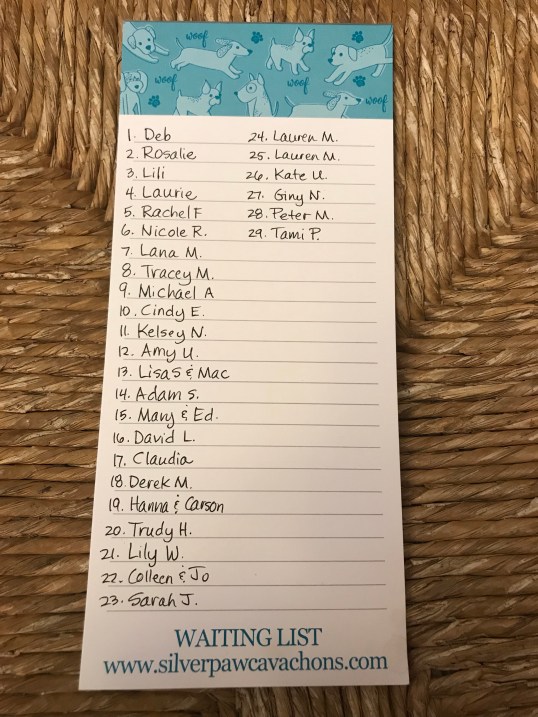 woof
woof
woof
woof
woof
1. Deb
2. Rosalie
3. Lili
4. Laurie
5. Rachel F
6. Nicole R.
7. Lana M.
8. Tracey M.
9. Michael A
10. Cindy E.
11. Kelsey N.
12. Amy U.
13. Lisa S & Mac
14. Adam S.
15. Mary & Ed.
16. David L.
17. Claudia
18. Derek M.
19. Hanna & Carson
20. Trudy H.
21. Lily W.
22. Colleen & Jo
23. Sarah J.
24. Lauren M.
25. Lauren M.
26. Kate U.
27. Giny N.
28. Peter M.
29. Tami P.
WAITING LIST
www.silverpawcavachons.com